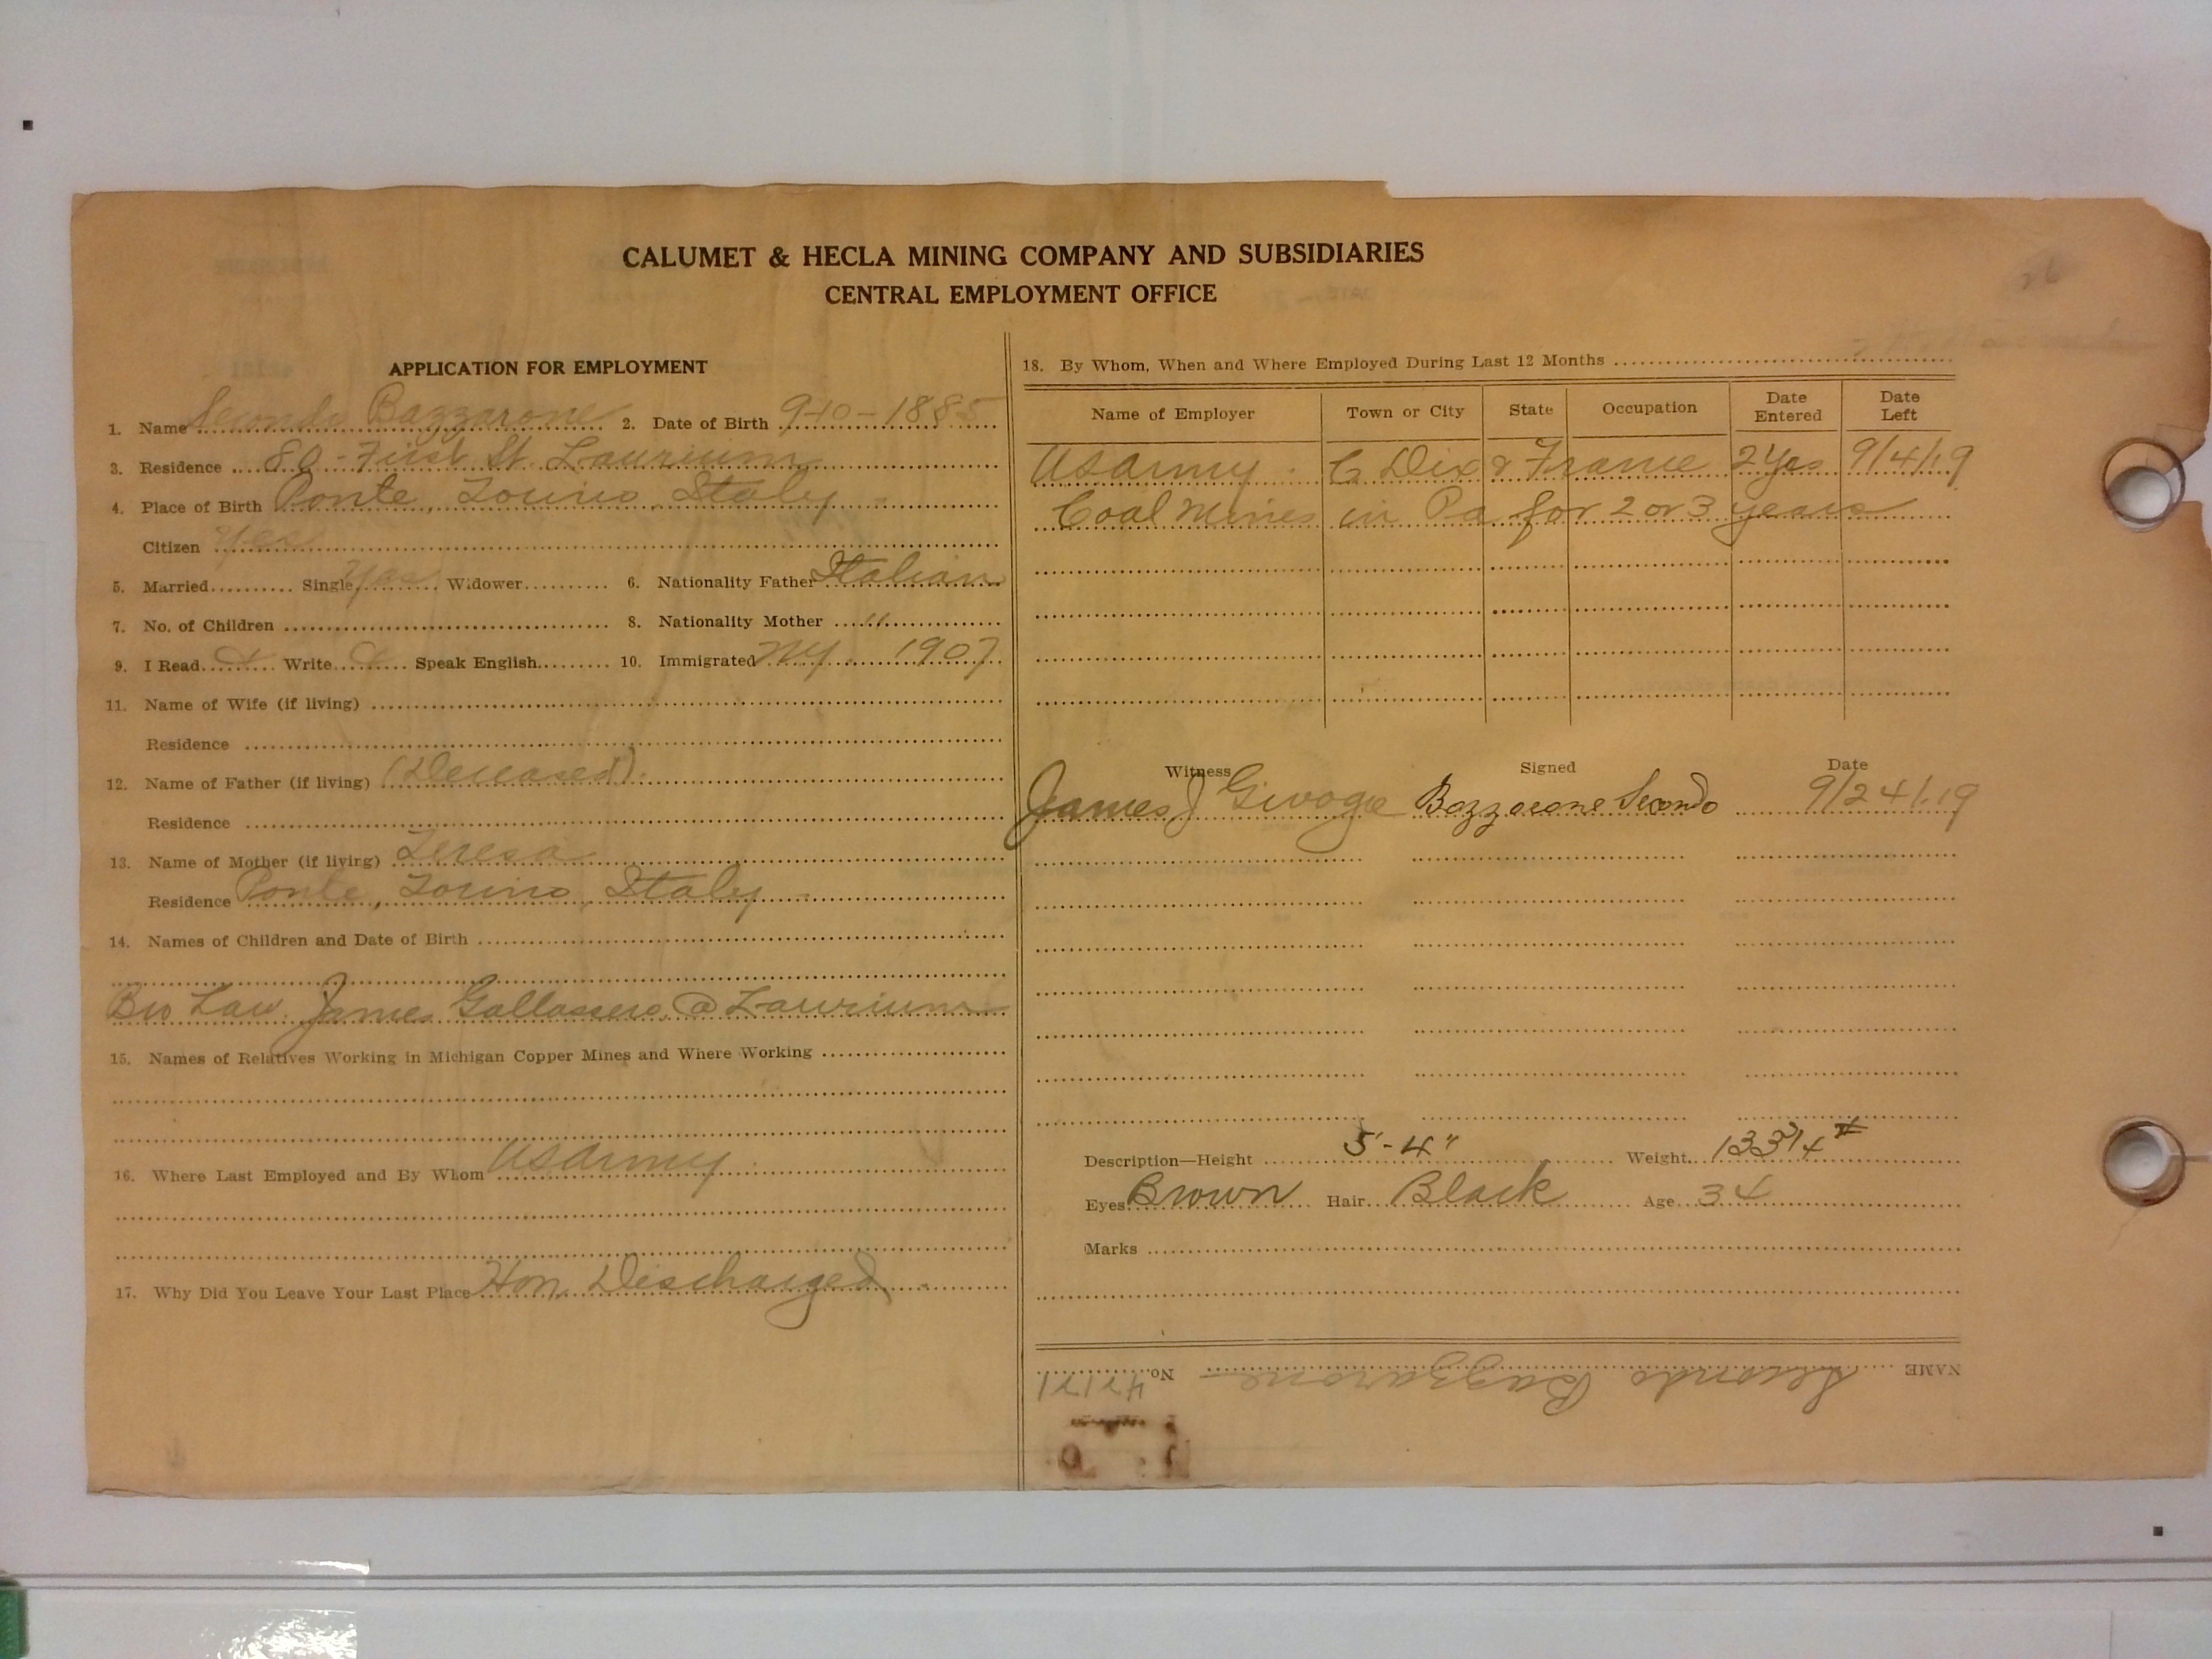 CALUMET & HECLA MINING COMPANY AND SUBSIDIARIES
CENTRAL EMPLOYMENT OFFICE
APPLICATION FOR EMPLOYMENT
1. Name Secondo Bazzarone 2. Date of Birth 9-10-1885
3. Residence 80-First St. Laurium
4. Place of Birth Ponte, Torino, Italy
Citizen Yes
5. Married Single Yes Widower 6. Nationality Father Italian
7. No. of Children 8. Nationality Mother "
9. I Read Write Speak English 10. Immigrated NY. 1907
11. Name of Wife (if living)
Residence
12. Name of Father (if living) (Deceased)
Residence
13. Name of Mother (if living) Teresa
Residence Ponte, Torino, Italy
14. Names of Children and Date of Birth
Bro Law. James @ Laurium
15. Names of Relatives Working in Michigan Copper Mines and Where Working
16. Where Last Employed and By Whom US Army
17. Why Did You Leave Your Last Place Hon. Discharged
18. By Whom, When and Where Employed During Last 12 Months
Name of Employer Town or City State Occupation Date Entered Date Left
US Army C Dix & France 2 Yrs 9/4/19
Coal Mines in Pa for 2 or 3 years
Witness Signed Date
James J Bazzarone Secondo 9/24/19
Description—Height 5'-4" Weight 133 1/4 #
Eyes Brown Hair Black Age 34
Marks
NAME Secondo Bazzarone No. 47171